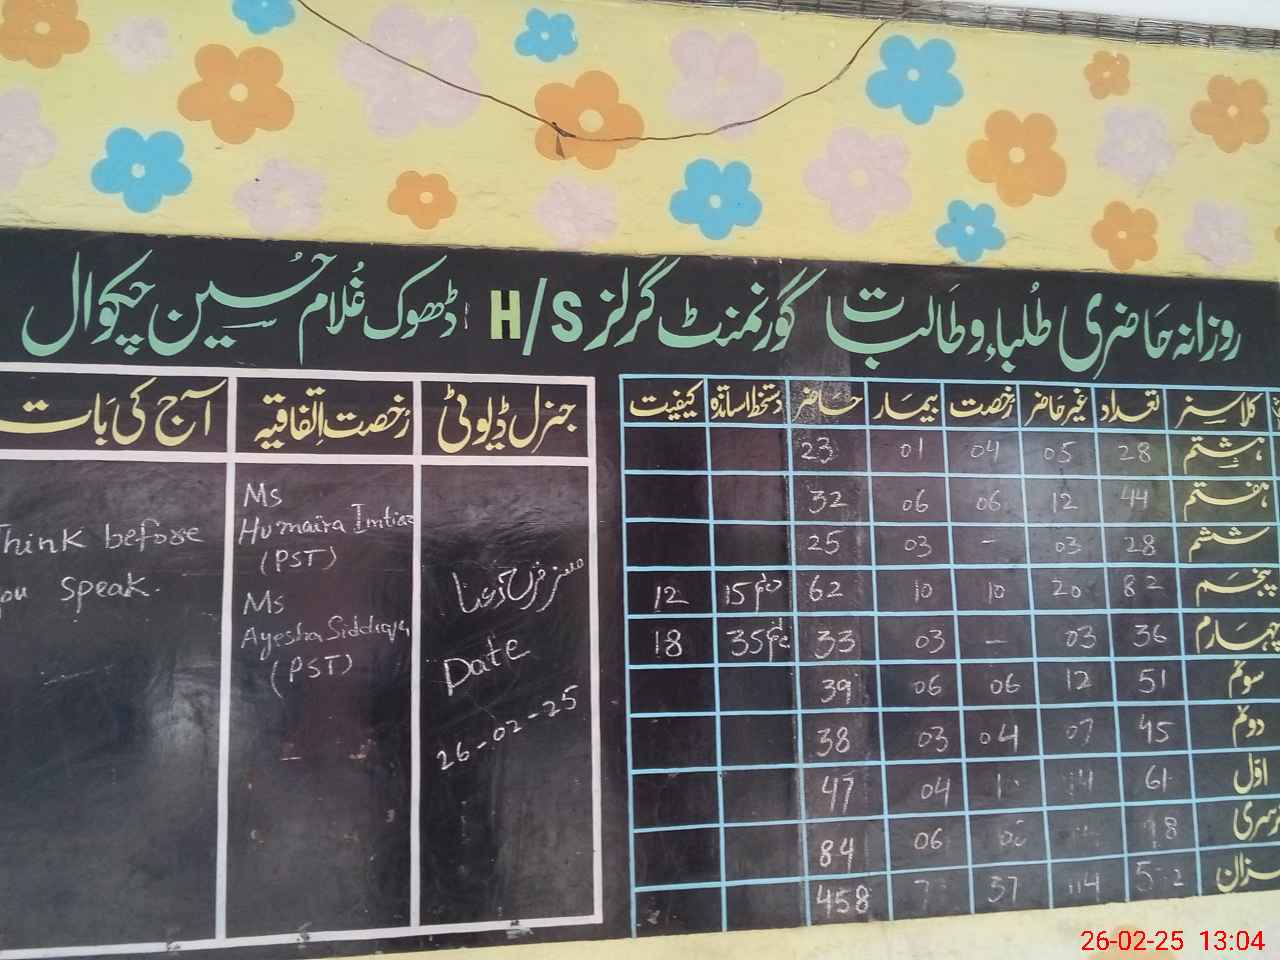 روزانہ حاضری طلباء و طالبات گورنمنٹ گرلز H/S ڈھوک غلام حسین چکوال
کلاسز تعداد غیر حاضر رخصت بیمار حاضر دستخط اساتذہ کیفیت
ہشتم 28 05 04 01 23
ہفتم 44 12 06 06 32
ششم 28 03 - 03 25
پنجم 82 20 10 10 62 15 12
چہارم 36 03 - 03 33 35 18
سوئم 51 12 06 06 39
دوئم 45 07 04 03 38
اوّل 61 14 04 47
نرسری 06 84
میزان 37 458
جنرل ڈیوٹی
مسز فرح رعنا
Date
26-02-25
رُخصت اتفاقیہ
Ms
Humaira Imtiaz
(PST)
Ms
Ayesha Siddiqa
(PST)
آج کی بات
Think before
you speak.
26-02-25 13:04